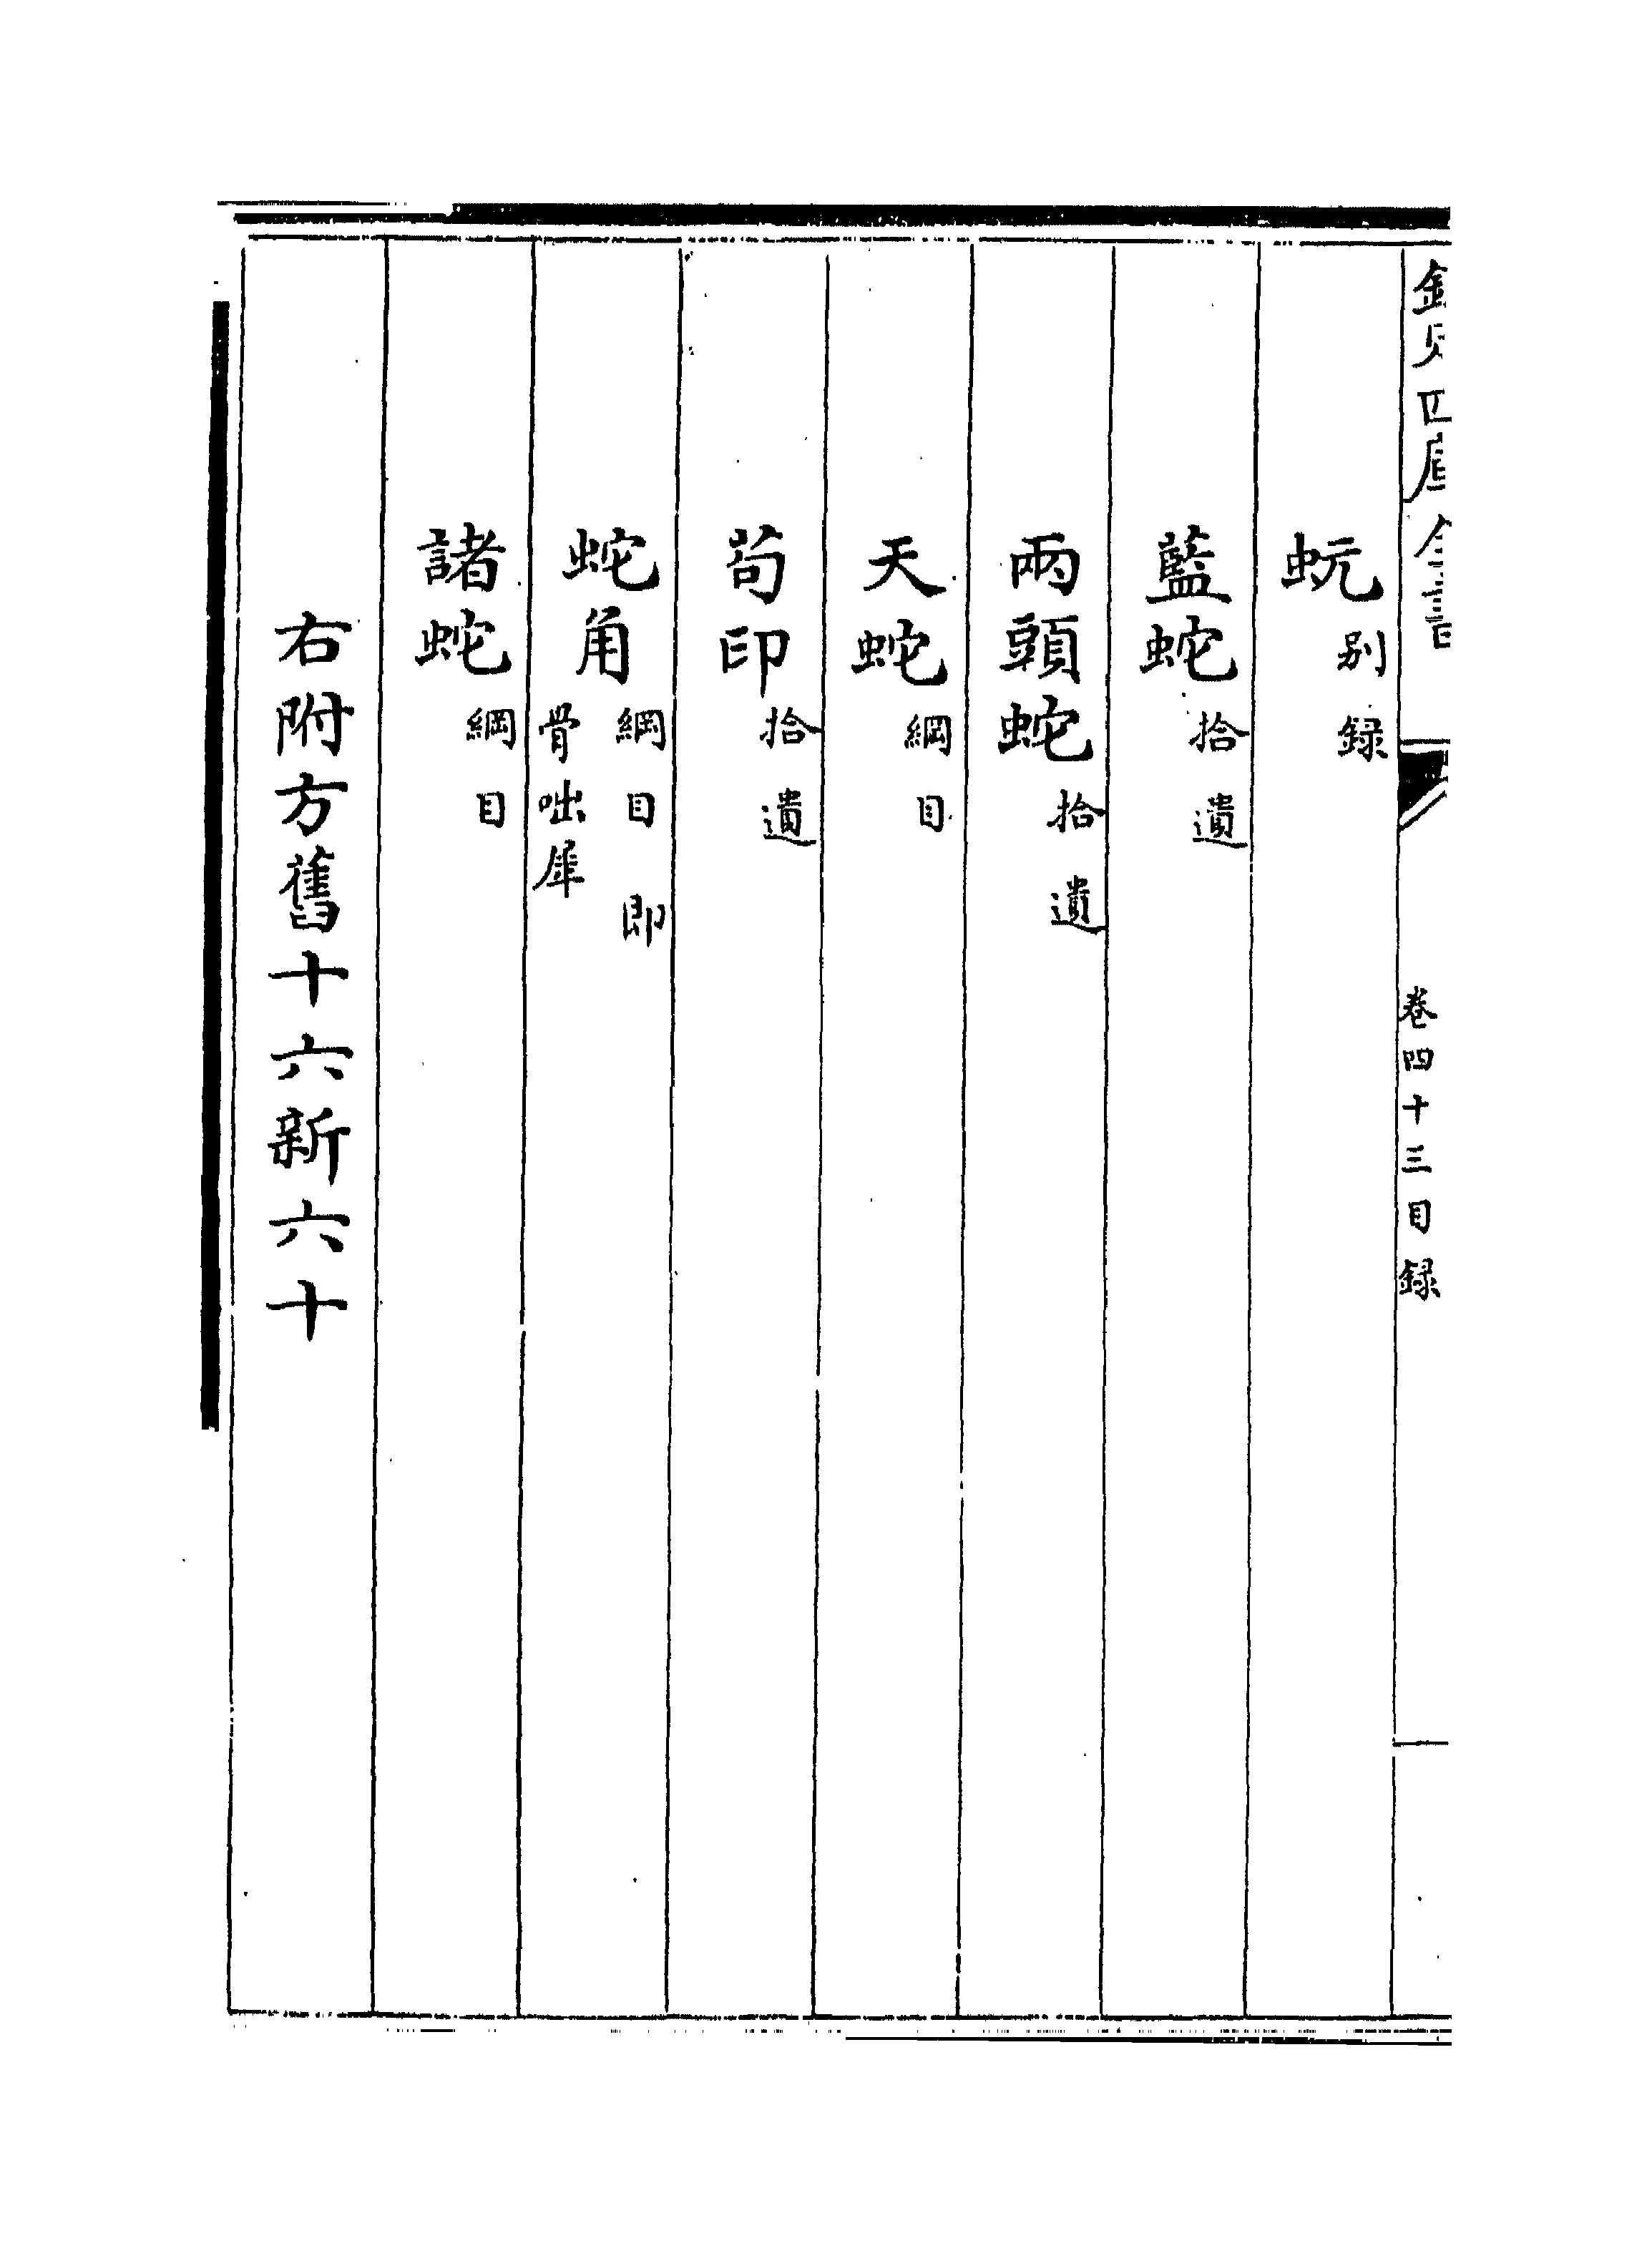 欽定四庫全書
卷四十三目録
蚖别録
藍蛇拾遺
兩頭蛇拾遺
天蛇綱目
茍印拾遺
蛇角綱目即
骨咄犀
諸蛇綱目
右附方舊十六新六十